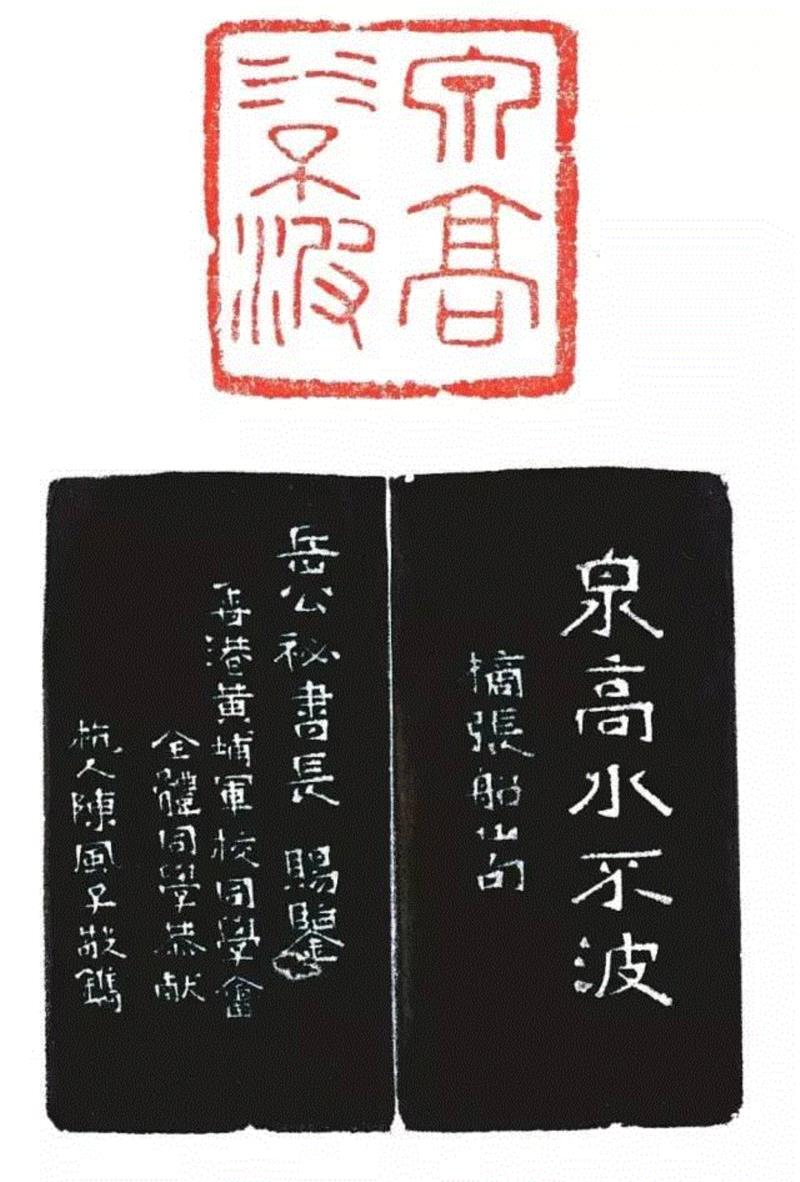 泉高
水不波
泉高水不波
摘張船山句
岳公祕書長 賜鑒
香港黄埔軍校同學會
全體同學恭献
杭人陳風子敬鐫